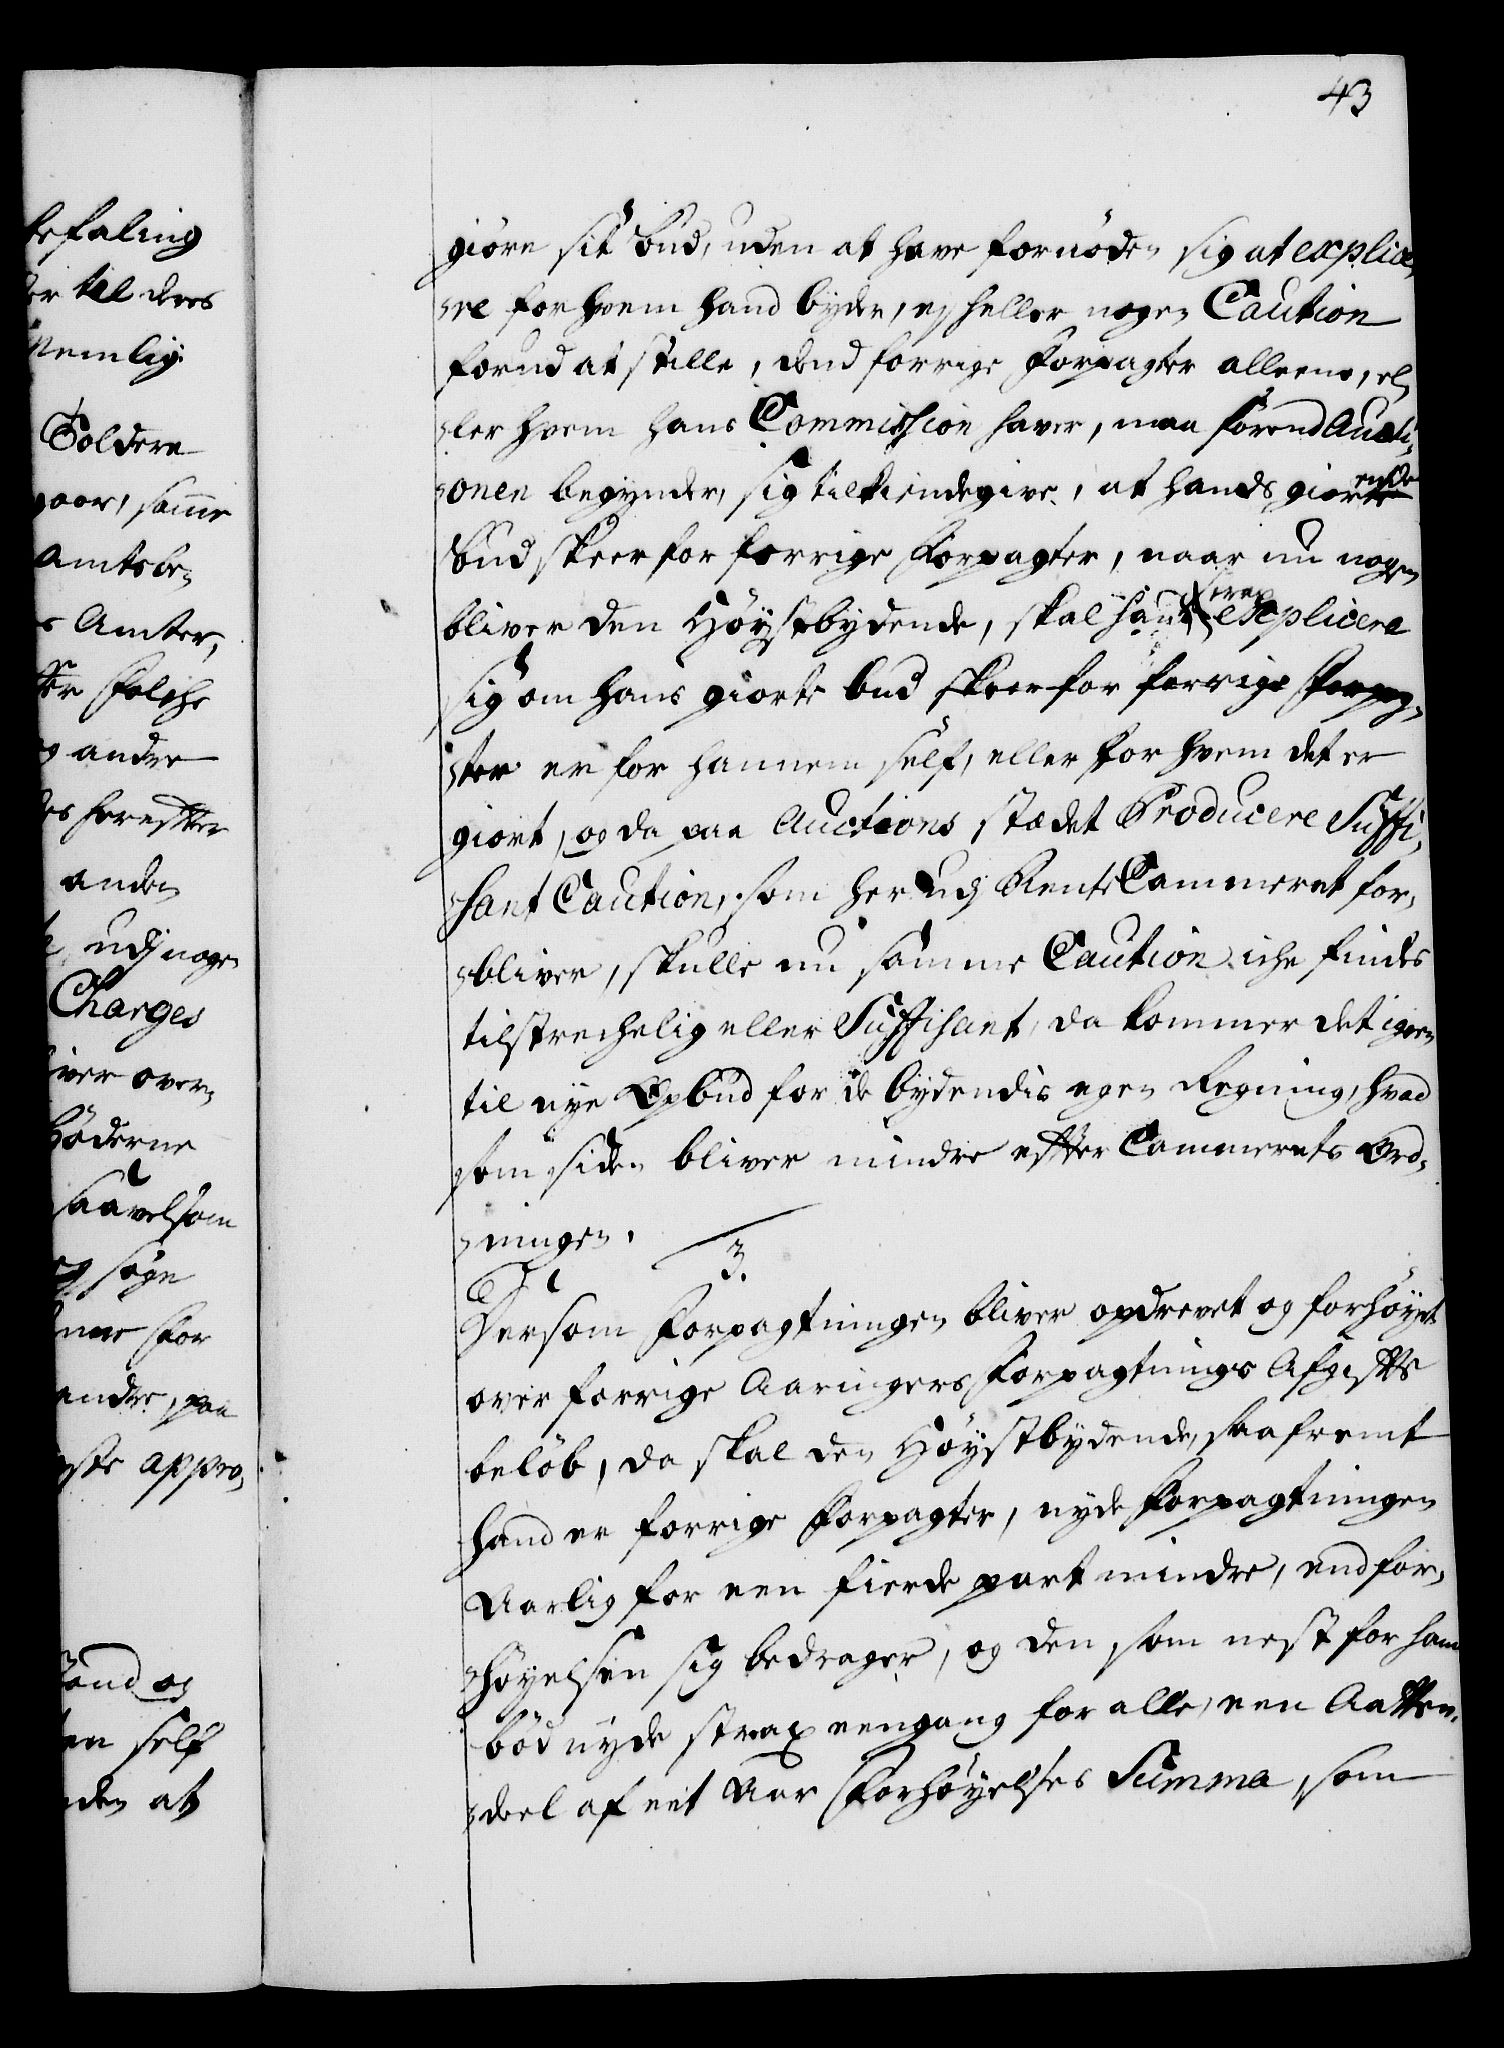 43
giöre sit bud, uden at have fornöden sig at explice,
re for hvem hand byder, ej heller nogen Caution
forud at stille, dend forrige Forpagter alleene, el,
ler hvem hans Commission haver, maa förend Aucti,
onen begynder, sig tilkiendegive, at hands giörende
bud skeer for forrige Forpagter, naar nu nogen
bliver den Höystbydende, skal hand strax explicere
sig om hans giorte bud skeer for forrige Forpag,
ter er for hannem self, eller for hvem det er
giort, og da paa Auctions stædet Producere Suffi,
sant Caution, som her udj Rente Cammeret for,
bliver, skulle nu samme Caution iche findes
tilstrechelig eller Suffisant, da kommer det igien
til nye Opbud for de bydendis egen Regning, hvad
som siden bliver mindre effter Cammerets Ord,
ningen.
3.
Dersom Forpagtningen bliver opdrevet og forhöyet
over forrige Aaringers Forpagtnings Afgiffts
belöb, da skal den Höystbydende, saafremt
hand er forrige Forpagter, nyde Forpagtningen
Aarlig for een fierde part mindre, end for,
höyelsen sig bedrager, og den som nest for ham
böd nyde strax eengang for alle, een Aatten,
deel af eet Aar Forhöyelses Summa, som
befaling
til deres
Nemlig
Toldere
samme
Amtsbe,
Amter,
Folche
andre
forretter
anden
udj nogen
Charges
over,
saavelsom
söge
for
andre, paa
appro,
og
self
at